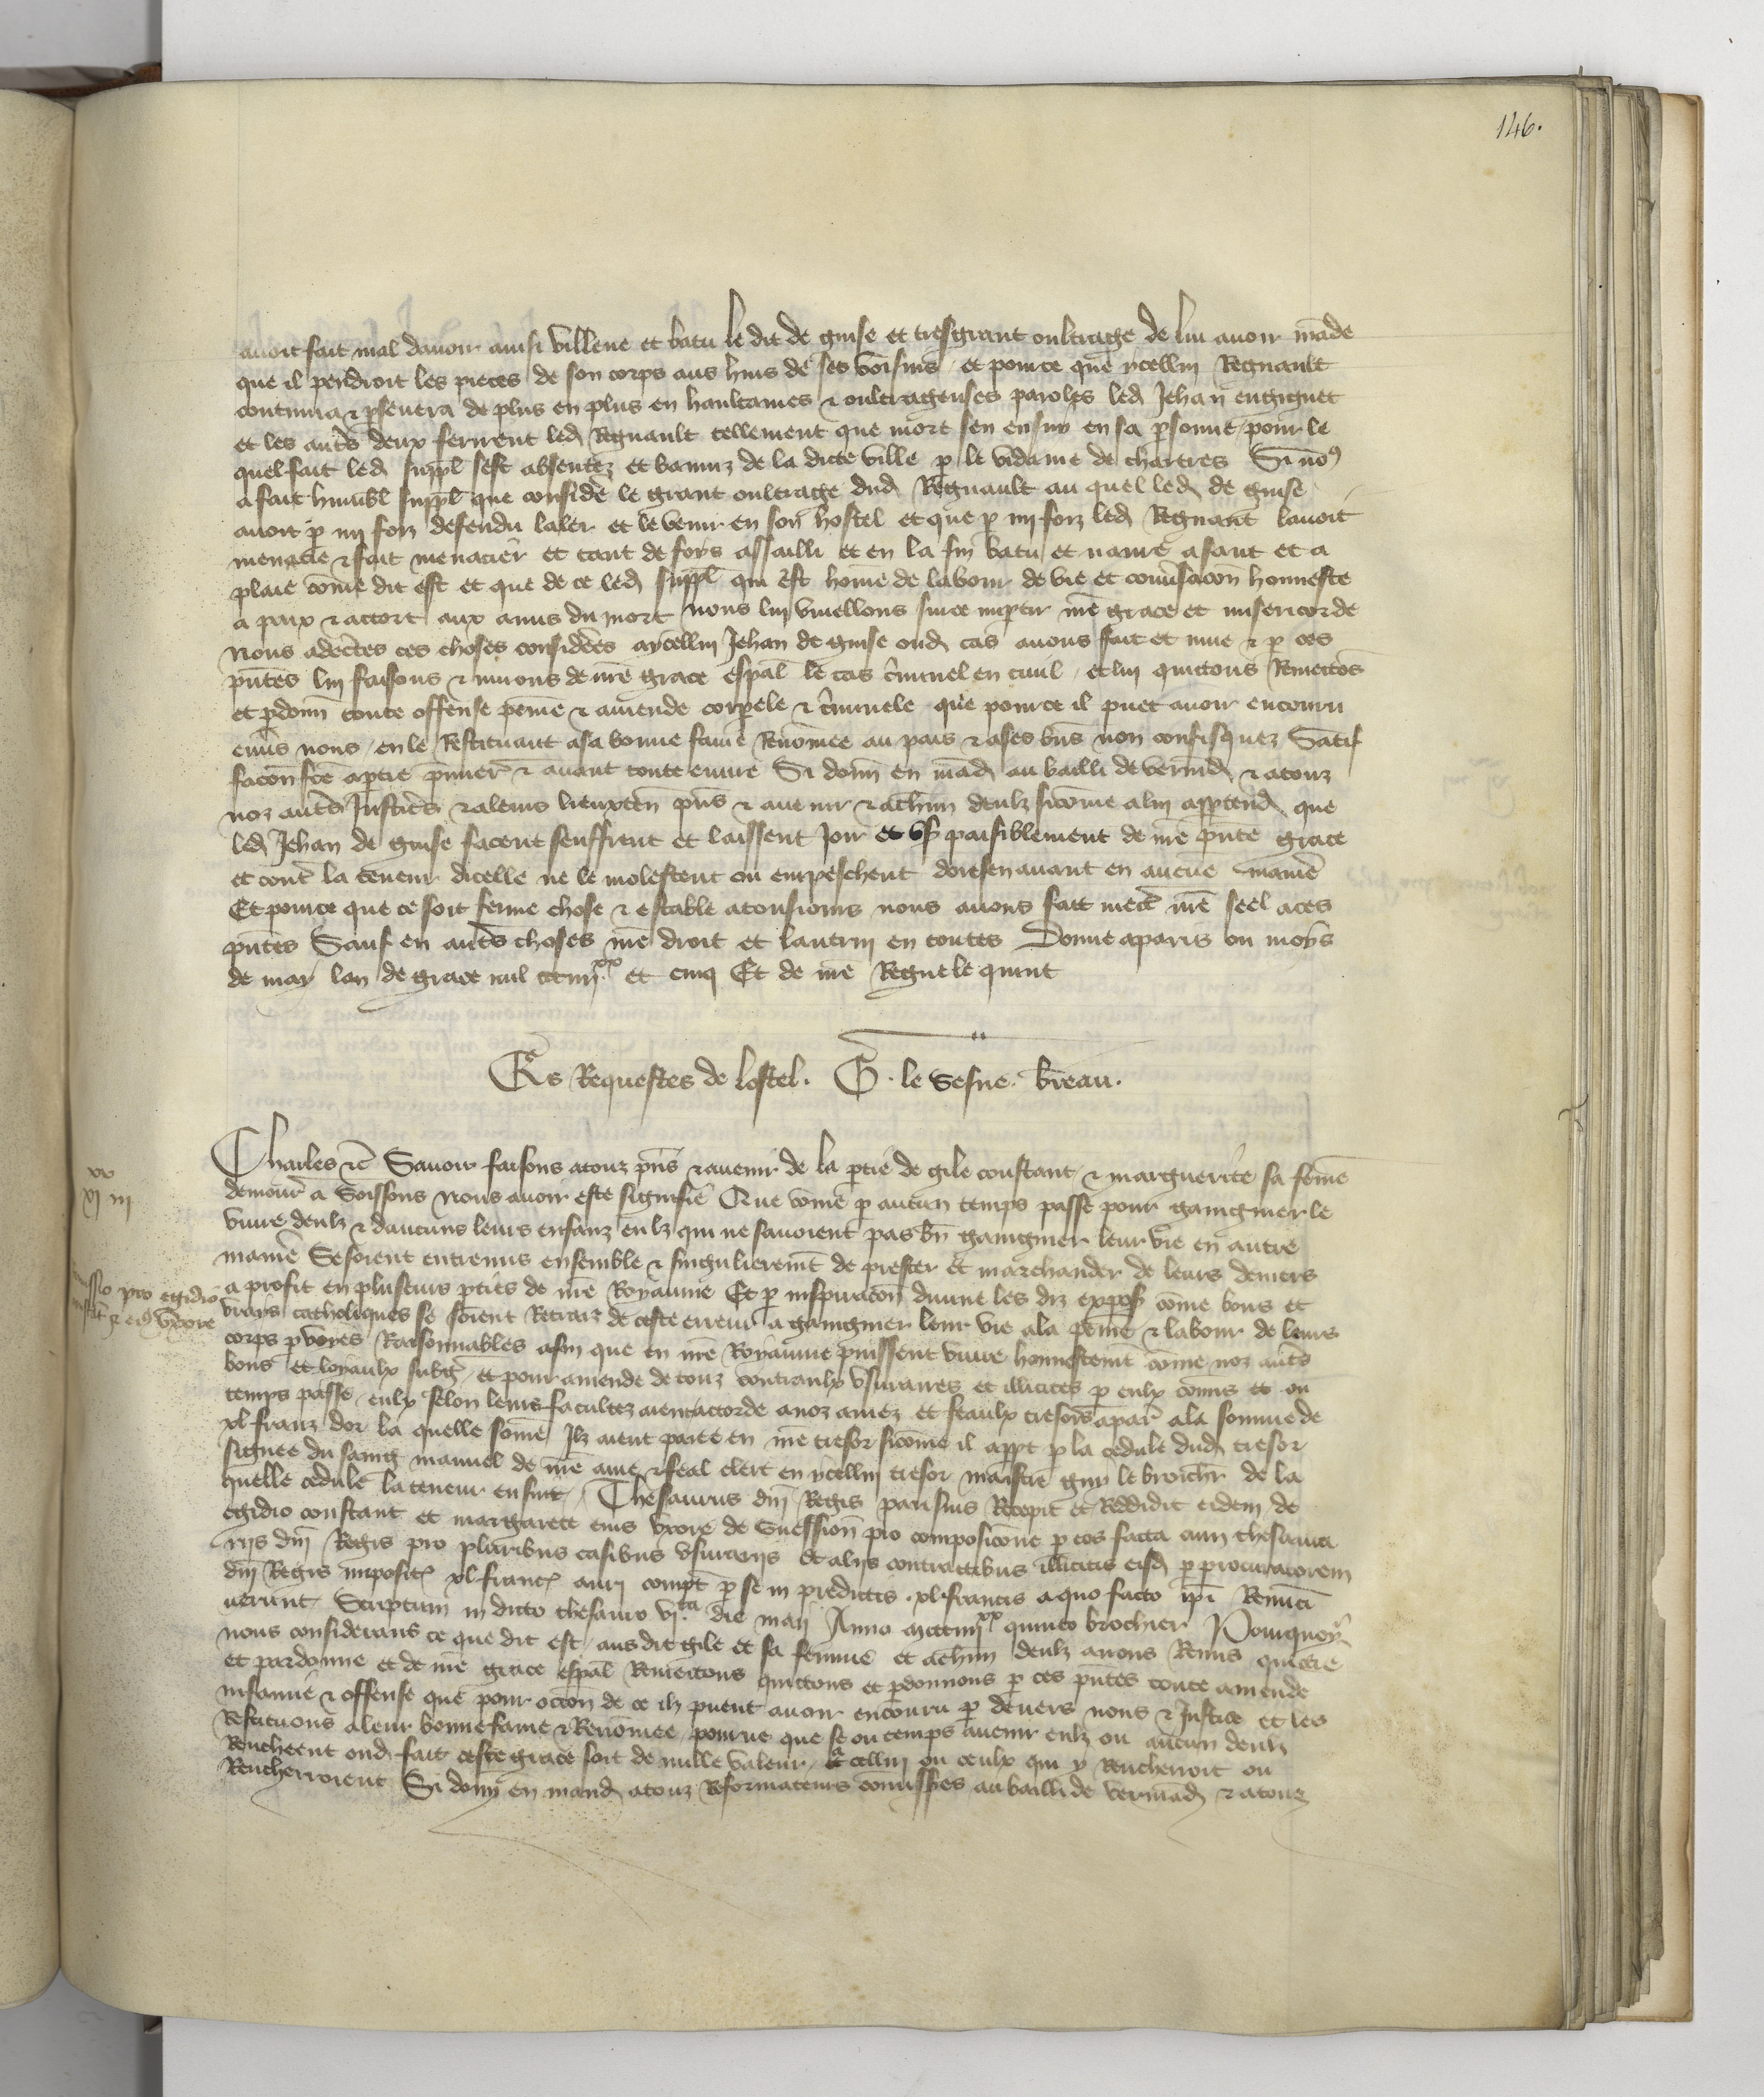 146.
avoit fait mal davoir ainsi villene et batu le dit de guise et tresgrant oultrage de lui avoir mãde
que il pendroit les pieces de son corps aus huis de ses voisins et pource que ycellui Regnault
continua & pseuera de plus en plus en haultaines & oultrageuses paroles led Jehan engignet
et les autˢ deux ferirent led Regnault tellement que mort sen ensuy en sa psonne pour le
quel fait led suppl̃ sest absentez et banniz de la dicte ville p le vidame de chartres Si noˢ
a fait humbl̃ suppl̃ que considẽ le grant oultrage dud Regnault au quel led de guise
avoit p iiij foiz defendu laler et le venir en son hostel et que p iiij foiz led Regnault lavoit
menacie & fait menacier et tant de fois assailli et en la fin batu et navre a sanc et a
plaie cõme dit est et que de ce led suppl̃ qui est hõme de labour de vie et conṽsacõn honneste
a paix & accort aux amis du mort nous lui vueillons surce impartir nr̃e grace et misericorde
Nous adecẽtes ces choses considẽes aycellui Jehan de guise oud cas avons fait et mue & p ces
pñtes lui faisons & muons de nr̃e grace esp̃al le cas c̃minel en civil et lui quittons Remettõs
et pdonñ toute offense peine & amende corpele & c̃minele que pource il puet avoir encouru
enṽs nous en le Restituant a sa bonne fame Renõmee au pais & a ses bñs non confisquez Satif
facõn fcẽ a ptie p̃mier̃ & avant toute euvre Si donñ en mãd au bailli de vermd & a touz
noz autˢ Justicˢ & a leurs lieuxteñ pñs & avenir & a ch̃un deulz sicõme a lui apptend̃ que
led Jehan de guise facent seuffrent et laissent Joir et us̃ paisiblement de nr̃e pñte grace
et cont̃ la teneur dicelle ne le molestent ou empeschent doresenavant en aucũe manie᷑
Et pource que ce soit ferme chose & estable a tousiours nous avons fait mett̃ nr̃e seel a ces
pñtes Sauf en autˢ choses nr̃e droit et lautruy en toutes Donne a paris ou moys
de may lan de grace mil ccciiijˣˣ et cinq Et de nr̃e Regne le quint
Es Requestes de lostel. G. le Vesne. breau.
Charles &c̃ Savoir faisons a touz pñs & avenir de la ptie de gile constant & marguerite sa fẽme
demour̃ a Soissons Nous avoir este signifie Que cõme p aucun temps passe pour gaingnier le
vivre deulz & daucuns leurs enfanz eulz qui ne savoient pas bñ gaingnier leur vie en autre
manie᷑ Se soient entremis ensemble & singulieremẽt de prester et marchander de leurs deniers
a profit en pluseurs pties de nr̃e Royaume Et p inspiracõn divine les diz exposˢ cõme bons et
vrays catholiques se soient Retraiz de ceste erreur a gaingnier leur vie a la peine & labour de leurs
corps p voies Raisonnables afin que en nr̃e Royaume puissent vivre honnestemẽt cõme noz autˢ
bons et loyaulx subgˢ et pour amende de touz contraulx usuraires et illicites p eulx cõmis et ou
temps passe eulx selon leurs facultez aient accorde a noz amez et feaulx tresorˢ a par̃ a la somme de
xl franz dor la quelle sõme Ilz aient paiee en nr̃e tresor sicõme il appt p la cedule dud tresor
signee du saing manuel de nr̃e ame & feal clerc en ycellui tresor maistre guy le brochier de la
quelle cedule la teneur ensuit Thesaurus dñi Regis parisius Recepit et Reddidit eidem de
egidio constant et margareta eius uxore de Suession pro composicõne p eos facta cum thesaura
rijs dñi Regis pro pluribus casibus usurarijs et alijs contractibus illicitis eisd̃ p procuratorem
dñi Regis impositˢ xl francˢ auri compt̃ p se in predictis xl francis a quo facto ip̃i Renũci
averunt Scriptum in dicto thesauro vi.ta die maij Anno mccciiijˣˣ quinto brochier Pourquoy
nous considerans ce que dit est aus dit gile et sa femme et a ch̃un deulz avons Remis quictie
et pardonne et de nr̃e grace esp̃al Remettons quittons et pdonnons p ces pñtes toute amende
infamie & offense que pour occõn de ce ilz puent avoir encouru p devers nous & Justice et les
Restituons a leur bonne fame & Renõmee pourveu que se ou temps avenir eulz ou aucun deulz
Rencheent oud fait ceste grace soit de nulle valeur a cellui ou ceulx qui y Rencherroit ou
Rencherroient Si donñ en mand a touz Reformateurs cõmissˢes au bailli de vermãd & a touz
xv
xj iij
ssio pro egidio
& eiˢ uxore